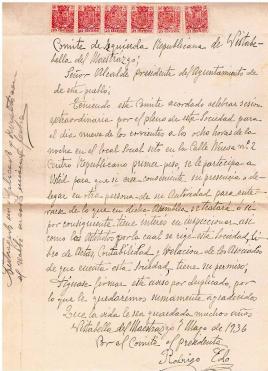 Comite de Izquierda Republicana de Vistabe-
bella del Maestrazgo.
Señor Alcalde presidente del Ayuntamiento de
de este pueblo;
Teniendo este Comite acordado celebrar sesion
extraordinaria por el pleno de esta Sociedad para
el dia nueve de los corrientes a las ocho horas de la
noche en el local Social sito en la Calle Nueva nº 2
Centro Republicano primer piso, se le participa a
Usted para que si cree conveniente, su presencia o de-
legar en otra persona de su Autoridad para ente-
rarse de lo que en dicha Asamblea se tratará o si
por consiguiente tiene interes de inspeccionar, asi
como los Estatutos por la cual se rige esta Sociedad, li-
bro de Actas, Contabilidad y relacion de los Asociados
de que cuenta esta Sociedad tiene su permiso;
firmar este aviso por duplicado, por
lo que le quedaremos sumamente agradecidos
Que la vida le sea guardada muchos años
Vistabella del Maestrazgo Mayo de 1936
Por el Comite el presidente
Rodrigo Edo